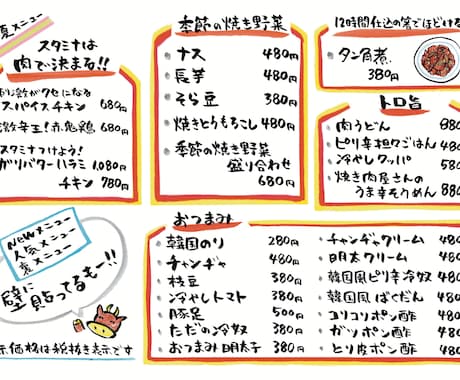 裏メニュー
スタミナは
肉で決まる!!
刺激がクセになる
スパイスチキン 680円
激辛王!赤鬼鶏 680円
スタミナつけよう!
ガリバターハラミ 1,080円
チキン 780円
季節の焼き野菜
・ナス 480円
・長芋 480円
・そら豆 380円
・焼きとうもろこし 480円
・季節の焼き野菜
盛り合わせ
680円
12時間仕込の箸でほどける
・タン角煮
380円
トロ旨
・肉うどん 880
・ピリ辛担々ごはん 480
・冷やしクッパ 580
・焼き肉屋さんの
うま辛そうめん 880
Newメニュー
人気メニュー
裏メニュー
壁に
貼ってるもー!!
表示価格は税抜き表示です
おつまみ
・韓国のり 280円
・チャンヂャ 480円
・枝豆 380円
・冷やしトマト 380円
・豚足 500円
・ただの冷奴 380円
・おつまみ明太子 380円
・チャンヂャクリーム 480
・明太クリーム 480
・韓国風ピリ辛冷奴 480
・韓国風ばくだん 480
・コリコリポン酢 480
・ガツポン酢 480
・とり皮ポン酢 480